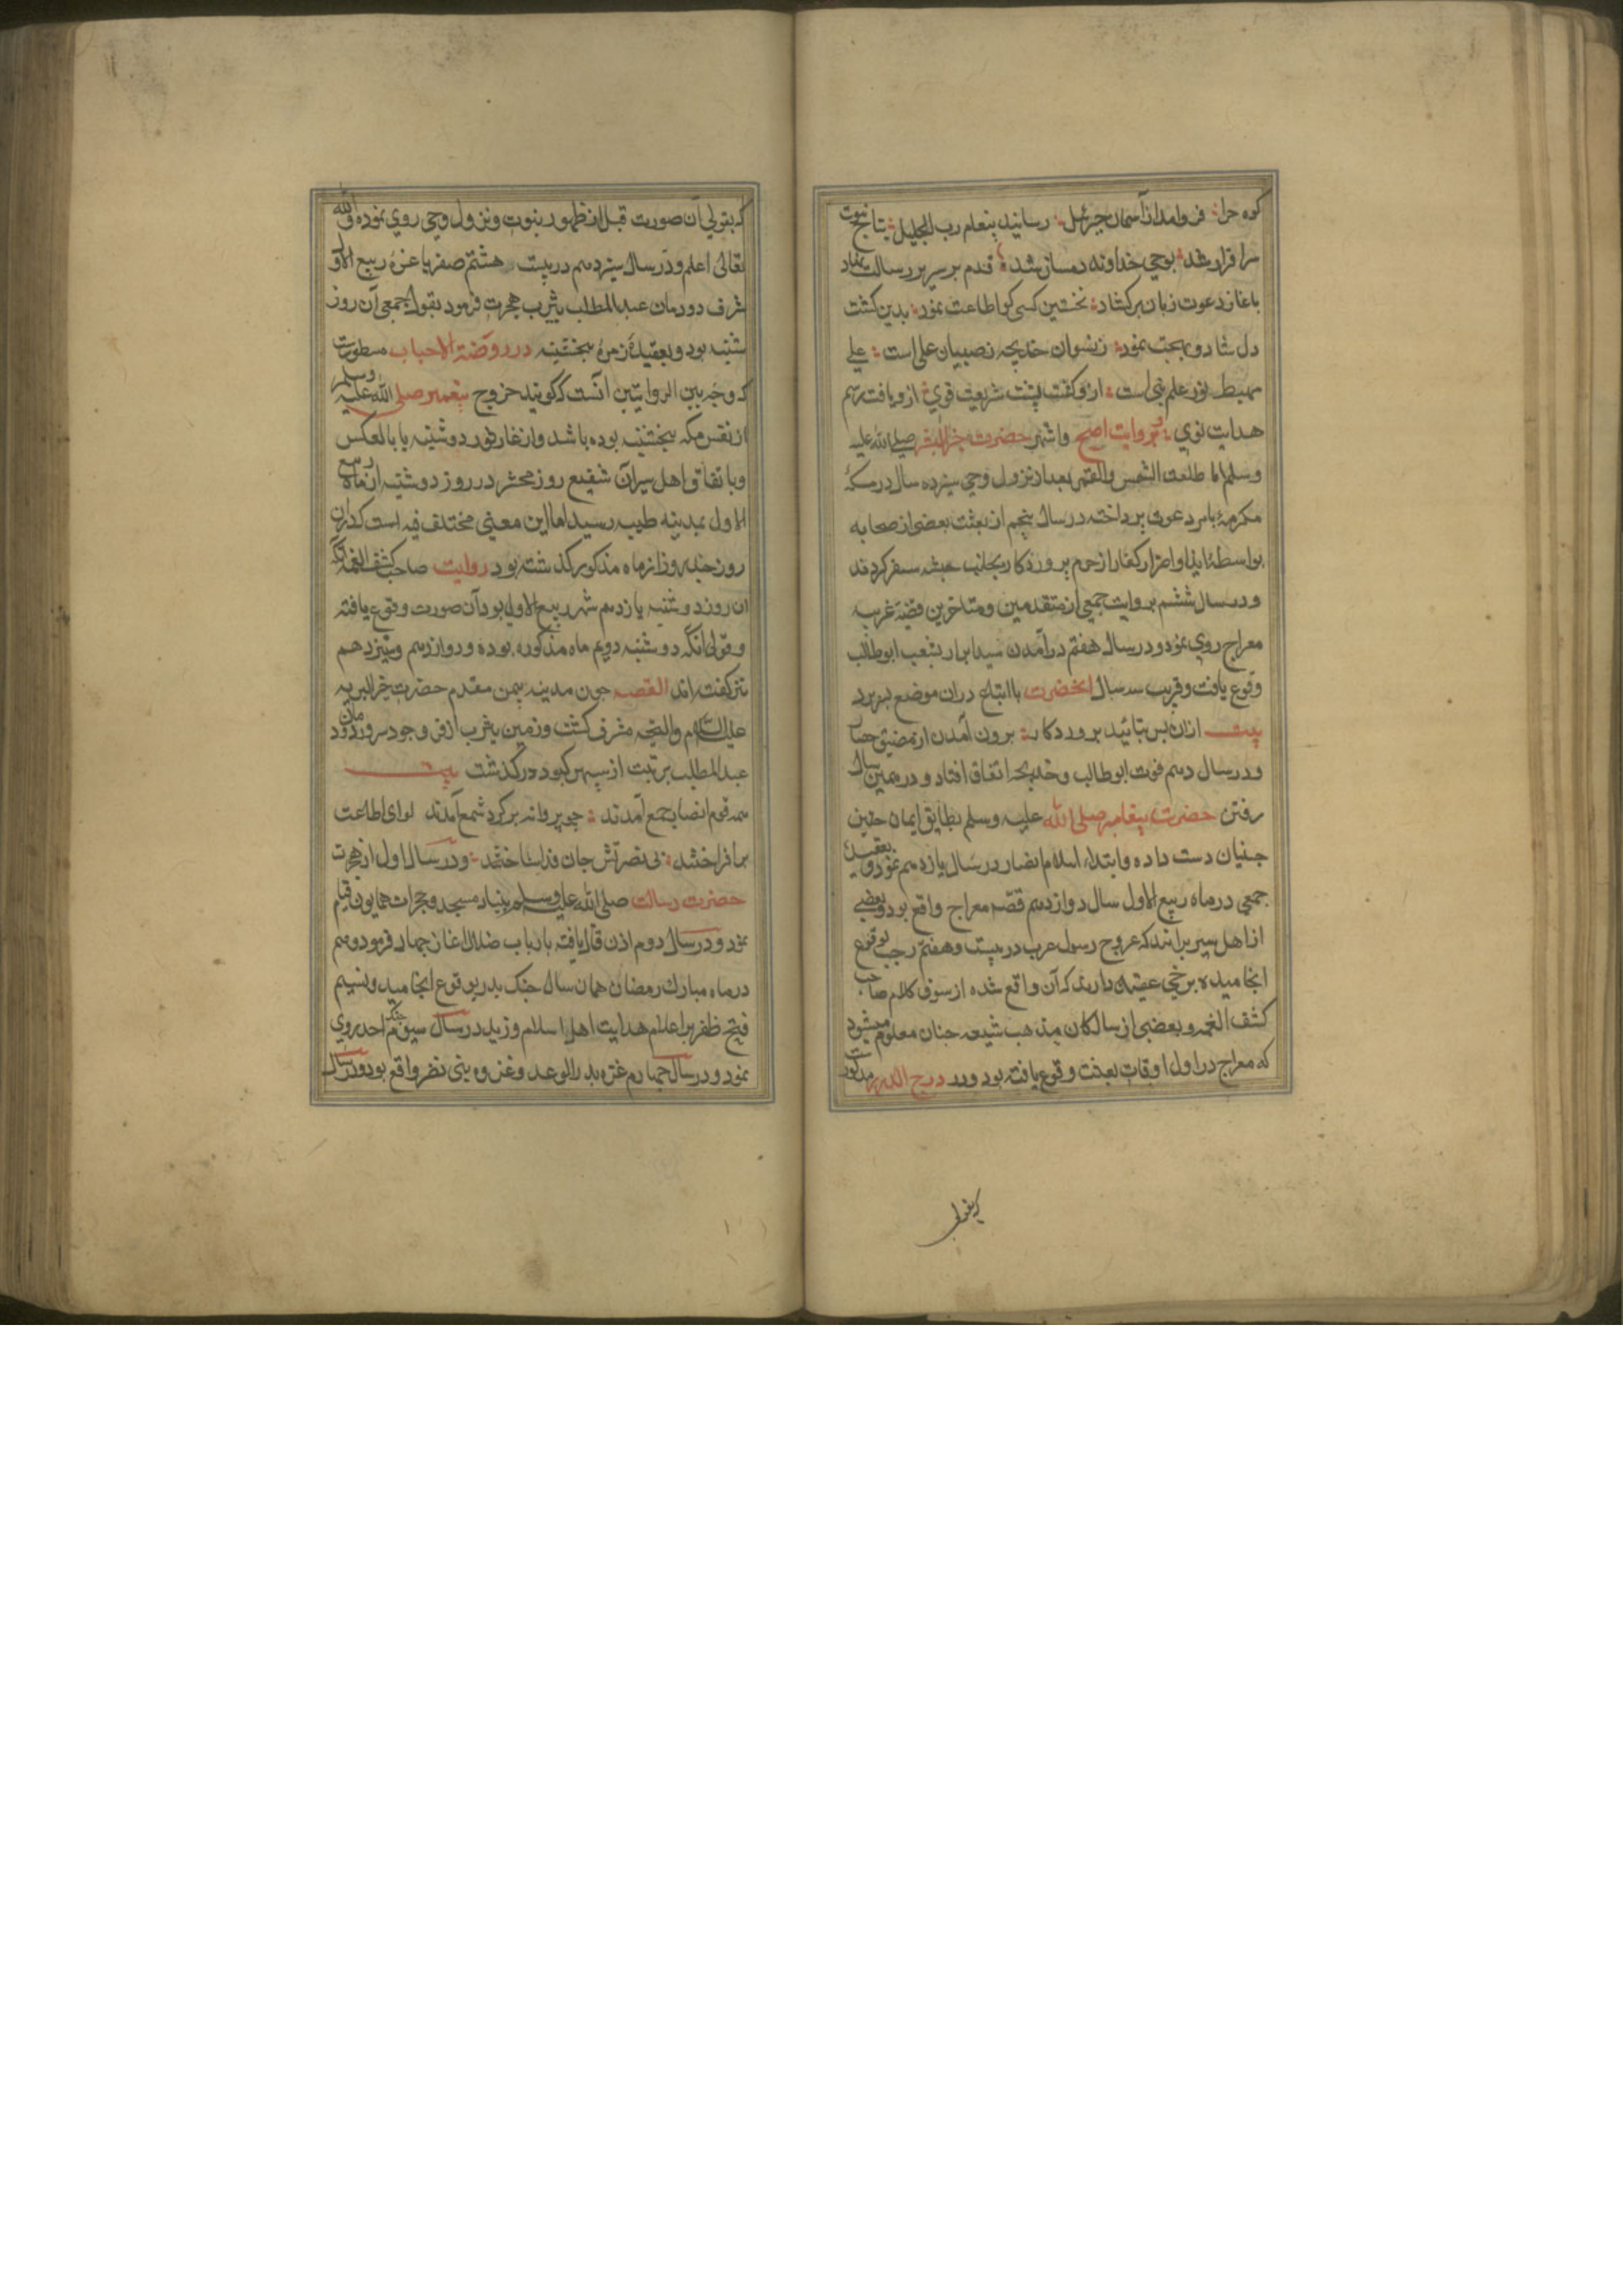 کوه حرا فرو امد از آسمان جبرئیل رسانید پیغام رب الجلیل بتاج نبوت
سرافراز شد بوحی خداوند دمساز شد قدم بر سریر رسالت نهاد
باغاز دعوت زبان برکشاد نخستین کسی کو اطاعت نمود بدین کشت
دل شاد و بهجت نمود ز نسوان خدیجه ز صبیان علی است علی
مهبط نور علم نبی است ازو کشت پشت شریعت قوی ازو یافت رسم
هدایت نوی بروایت اصح و اشهر حضرت خیر البشر صلی الله علیه
وسلم ما طلعت الشمس والقمر بعد از نزول وحی سیزده سال در مکهٔ
مکرمه بامر دعوت پرداخته در سال پنجم از بعثت بعضی از صحابه
بواسطهٔ ایذا و اضرار کفار از حرم پروردکار بجانب حبشه سفر کردند
و در سال ششم بروایت جمعی از متقدمین و متاخرین قضیهٔ غریب
معراج روی نمود و در سال هفتم درآمدن سید ابرار بشعب ابوطالب
وقوع یافت و قریب سه سال انحضرت با اتباع دران موضع بسر برد
بیت ازان پس بتائید پروردکار برون آمدن از مضیق حصار
و در سال دهم فوت ابوطالب و خدیجه اتفاق افتاد و در همین سال
رفتن حضرت پیغامبر صلی الله علیه وسلم بطایف ایمان جنین
جنیان دست داده و ابتداء اسلام انصار در سال یازدهم نمود و بعقیدهٔ
جمعی در ماه ربیع الاول سال دوازدهم قصه معراج واقع بود و بعضی
از اهل سیر برانند که عروج رسول عرب در بیست و هفتم رجب بوقوع
انجامیده برخی عقیده دارند که آن واقع شده از سوق کلام صاحب
کشف الغمه و بعضی از سالکان مذهب شیعه چنان معلوم میشود
که معراج در اول اوقات بعثت وقوع یافته بود و در درج الدرر مذکور
که بقولی
که بقولی آن صورت قبل از ظهور نبوت و نزول وحی روی نموده والله
تعالی اعلم و در سال سیزدهم در بیست هشتم صفر یا غرهٔ ربیع الاول
شرف دودمان عبدالمطلب بیثرب هجرت فرمود بقول جمعی آن روز
شنبه بود و بعقیدهٔ زمرهٔ پنجشنبه در روضة الاحباب مسطورست
که وجه بین الروایتین آنست که کویند خروج پیغمبر صلی الله علیه وسلم
از نفس مکه پنجشنبه بوده باشد و از غار ثور دوشنبه یا بالعکس
و باتفاق اهل سیر آن شفیع روز محشر در روز دوشنبه از ماه ربیع
الاول بمدینه طیبه رسید اما این معنی مختلف فیه است که دران
روز چند روز از ماه مذکور کذشته بود روایت صاحب کشف الغمه آنکه
ان روز دوشنبه یازدهم شهر ربیع الاول بود آن صورت وقوع یافته
و قولی آنکه دوشنبه دویم ماه مذکوره بوده و دوازدهم و سیزدهم
نیز کفته اند القصه چون مدینه بیمن مقدم حضرت خیر البریه
علیه السلام والتحیه مشرف کشت و زمین یثرب از فر وجود سرور دودمان
عبدالمطلب برتبت از سپهر کبود درکذشت بیت
همه قوم انصار جمع آمدند چو پروانه بر کرد شمع آمدند لوای اطاعت
برافراختند پی نصرتش جان فدا ساختند و در سال اول از هجرت
حضرت رسالت صلی الله علیه وسلم ببنیاد مسجد و حجرات همایون قیام
نمود و در سال دوم اذن قتال یافته با ارباب ضلال اغاز جهاد فرمود و هم
در ماه مبارک رمضان همان سال جنک بدر بوقوع انجامید و نسیم
فتح و ظفر بر اعلام هدایت اهل اسلام وزید در سال سیوم جنک احد روی
نمود و در سال چهارم غزوه بدر الوعد و غزوه بنی نضر واقع بود و در سال